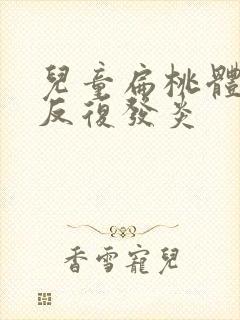 兒童扁桃體
反復發炎
香雪寵兒